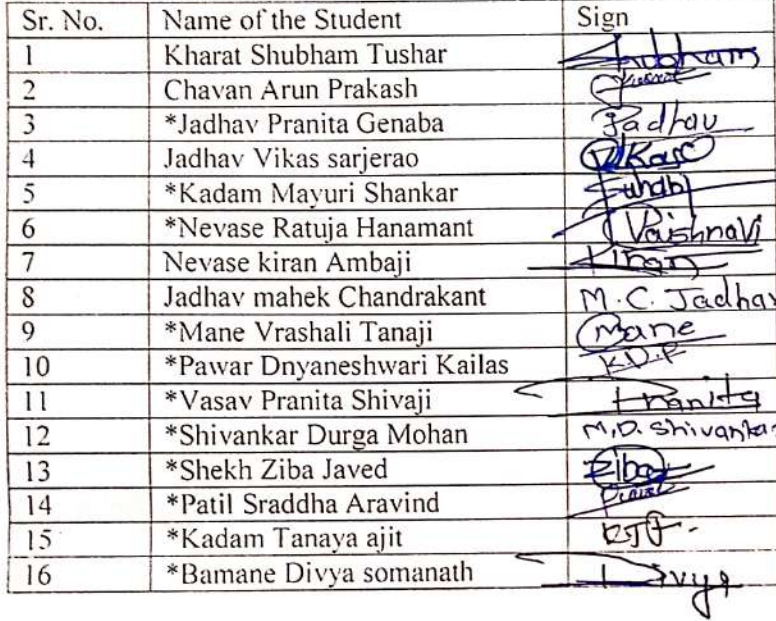 Sr. No. Name of the Student Sign
1 Kharat Shubham Tushar Shubham
2 Chavan Arun Prakash
3 *Jadhav Pranita Genaba Jadhav
4 Jadhav Vikas sarjerao Vikas
5 *Kadam Mayuri Shankar
6 *Nevase Ratuja Hanamant Vaishnavi
7 Nevase kiran Ambaji Kiran
8 Jadhav mahek Chandrakant M.C. Jadhav
9 *Mane Vrashali Tanaji Mane
10 *Pawar Dnyaneshwari Kailas K.D.P
11 *Vasav Pranita Shivaji Pranita
12 *Shivankar Durga Mohan M.D. Shivankar
13 *Shekh Ziba Javed Ziba
14 *Patil Sraddha Aravind
15 *Kadam Tanaya ajit
16 *Bamane Divya somanath Divya